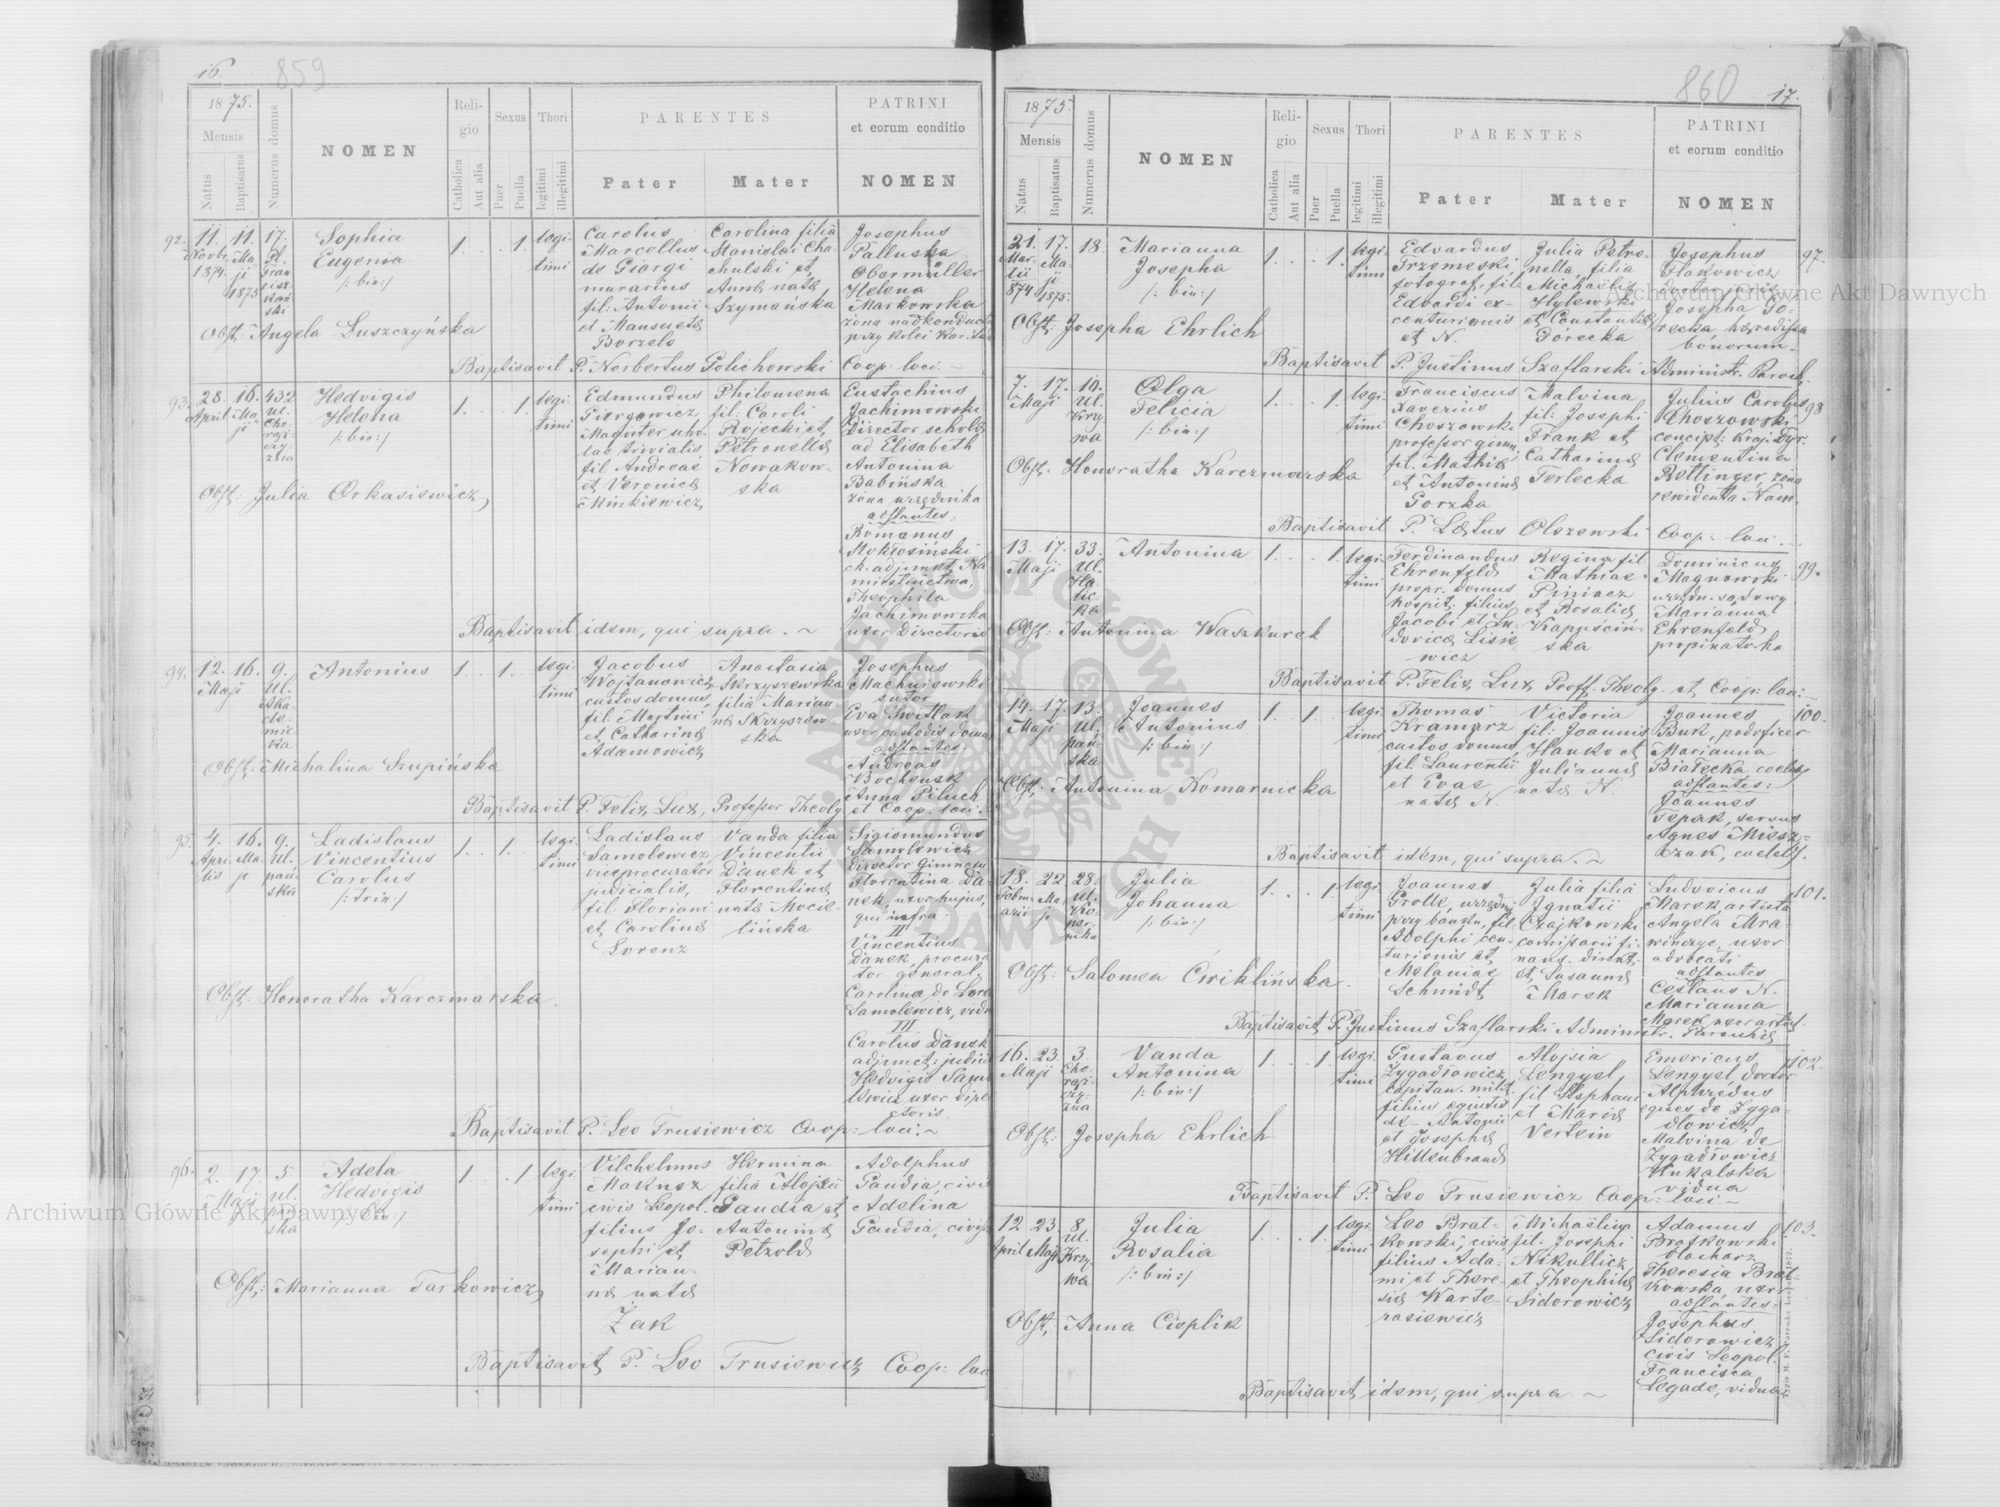 16.
859
1875.
Mensis
Natus
Baptisatus
Numerus domus
NOMEN
Religio
Catholica
Aut alia
Sexus
Puer
Puella
Thori
legitimi
illegitimi
PARENTES
Pater
Mater
PATRINI
et eorum conditio
NOMEN
92.
11.
Novbr.
1874.
11.
Maji
1875
17.
Pl.
Franciszkański
Sophia
Eugenia
/: bin :/
1. . . 1.
legitimi
Carolus
Marcellus
de Giorgi
murarius
fil: Antonii
et Mansueta
Borzelo
Carolina filia
Stanislai Chachulski et
Anna nata
Szymańska
Josephus
Palluska
Obermüller
Helena
Markowska
żona nadkonduch
przy kolei Kar.
Obst: Angela Łuszczyńska
Baptisavit P. Norbertus Golichowski Coop: loci.
93.
28.
April.
16.
Maji
432
ul.
Chorążczyzna
Hedvigis
Helena
/: bin :/
1. . . 1.
legitimi
Edmundus
Piorgowicz
Magister scholae trivialis,
fil: Andreae
et Veronica
Minkiewicz
Philomena
fil: Caroli
Rojecki et
Petronella
Nowakowska
Eustachius
Jachimowski
Director schola
ad Elisabeth
Antonina
Babińska
żona urzędnika
adstantes:
Romanus
Mokłosiński
c.k. adjunkt Namiestnictwa,
Theophila
Jachimowska
uxor Directoris
Obst: Julia Orkasiewicz
Baptisavit idem, qui supra. ~
94.
12.
Maji
16.
9.
Ul.
Akademicka
Antonius
1. . 1.
legitimi
Jacobus
Wojtanowicz
custos domus,
fil: Martini
et Catharina
Adamowicz
Anastasia
Skrzyszewska
filia Marianna Skrzyszowska
Josephus
Machniewski
sutor
Eva Switlak
uxor custodis domu
adstantes:
Andreas
Bochensk
Anna Piluch
Obst: Michalina Szupińska
Baptisavit P. Felix Lux, Professor Theolg et Coop. loci.
95.
4.
Aprilis
16.
Maji
9.
Ul.
pańska
Ladislaus
Vincentius
Carolus
/: trin :/
1. . 1.
legitimi
Ladislaus
Samolewicz
viceprocurator
judicialis,
fil: Floriani
et Carolina
Lorenz
Vanda filia
Vincentii
Danek et
Florentina
nata Mocielińska
Sigismundus
Samolewicz
Director Gimnas
Florentina Danek, uxor hujus,
qui infra.
II
Vincentius
Danek, procurator general.
Carolina de Lore
Samolewicz, vidu
III
Carolus Danek
adjunct: judici
Hedvigis Samolewicz uxor directoris.
Obst: Honoratha Karczmarska.
Baptisavit P. Leo Trusiewicz Coop: loci. ~
96.
2.
Maji
17.
5
ul.
pańska
Adela
Hedvigis
/: bin :/
1. . . 1
legitimi
Vilchelmus
Maknsz
civis Leopol.
filius Josephi et
Marianna nata
Żak
Hermina
filia Alojzii
Gaudia et
Antonina
Petzold
Adolphus
Gaudia, civis
Adelina
Gaudia, civis
Obst: Marianna Tarkowicz
Baptisavit P. Leo Trusiewicz Coop: loci
860
17.
1875.
Mensis
Natus
Baptisatus
Numerus domus
NOMEN
Religio
Catholica
Aut alia
Sexus
Puer
Puella
Thori
legitimi
illegitimi
PARENTES
Pater
Mater
PATRINI
et eorum conditio
NOMEN
21.
Martii
874
17.
Maji
1875.
18.
Marianna
Josepha
/: bin :/
1. . . 1.
legitimi
Edvardus
Trzemeski
fotograf, fil:
Edvardi excenturionis
et N.
Julia Petronella, filia
Michaelis
Hylewski
et Constantia
Górecka
Josephus
Hakowicz
doctor juris
Josepha Gorecka, haeredissa
bonorum.
97.
Obst: Josepha Ehrlich
Baptisavit P. Justinus Szaflarski Administ. Paroch.
7.
Maji
17.
19.
Ul.
Krzywa
Olga
Felicia
/: bin :/
1. . . 1.
legitimi
Franciscus
Xaverius
Choszowski
professor gimn.
fil. Mathia
et Antonina
Gorzka
Malvina
fil: Josephi
Frank et
Catharina
Terlecka
Julius Carolus
Choszowski
concipt: Kraj. Dyr.
Clementina
Rettinger żona
rewidenta Nam.
98
Obst: Honoratha Karczmarska
Baptisavit P. Laetus Olszewski Coop: loci. ~
13.
Maji
17.
33.
Ul.
Halicka
Antonina
1. . . 1.
legitimi
Ferdinandus
Ehrenfeld
propr. domus
hospit. filius
Jacobi et Ludovica Lisiewicz
Regina fil
Mathiae
Piniacz
et Rosalia
Kapuścińska
Dominicus
Magnowski
urzędn. sądowy
Marianna
Ehrenfeld
propinatorka
99.
Obst: Antonina Waszkurek
Baptisavit P. Felix Lux Proff. Theolg. et Coop: loci:
14.
Maji
17.
13.
Ul.
pańska
Joannes
Antonius
/: bin :/
1. . 1.
legitimi
Thomas
Kramarz
custos domus,
fil. Laurentii
et Evae
nata N.
Victoria
fil: Joannis
Hanko et
Julianna
nata N.
Joannes
Buk, podoficer
Marianna
Białecka coelebs
adstantes:
Joannes
Tepak, servus
Agnes Mieszczak, coelebs.
100.
Obst: Antonina Komarnicka
Baptisavit idem, qui supra. ~
18.
Februarii
22.
Maji
28.
Ul.
Kopernika
Julia
Johanna
/: bin :/
1. . . 1.
legitimi
Joannes
Grolle, urzędnik
przy banku, fil.
Adolphi centurionis et
Melaniae
Schmidt
Julia filia
Ignatii
Czajkowski
comissarii finans. direkt.
et Susanna
Marek
Ludovicus
Marek artista
Angela Mrawinczyc, uxor
advocati
adstantes
Ceslaus N.
Marianna
Marek uxor artist.
101.
Obst: Salomea Ćwiklińska.
Baptisavit P. Justinus Szaflarski Administr. Parochia
16.
Maji
23
3.
Chorążczyzna
Vanda
Antonina
/: bin :/
1. . . 1.
legitimi
Gustavus
Zygadłowicz
capitan. milit.
filius equitis
de Antonii
et Josepha
Hillenbrand
Alojsia
Lengyel,
fil Stephani
et Maria
Vertein
Emericus
Lengyel doctor
Alphredus
eques de Zygadłowicz
Malvina de
Zygadłowicz
Unkalska
vidua
102.
Obst: Josepha Ehrlich
Baptisavit P. Leo Trusiewicz Coop: loci ~
12
April
23
Maji
8.
Ul.
Krzywa
Julia
Rosalia
/: bin :/
1. . . 1.
legitimi
Leo Bratkowski, civis,
filius Adami et Theresia Warterasiewicz
Michaelina
fil. Josephi
Nikullicz
et Theophila
Sidorowicz
Adamus
Bratkowski
blacharz
Theresia Bratkowska, uxor
adstantes:
Josephus
Sidorowicz
civis Leopol.
Francisca
Legade, vidua
103.
Obst: Anna Cisplik
Baptisavit idem, qui supra. ~
Typis M. F. Poremba Leopoli 1872.
Archiwum Główne Akt Dawnych
Archiwum Główne Akt Dawnych
ARCHIWUM GŁÓWNE AKT DAWNYCH